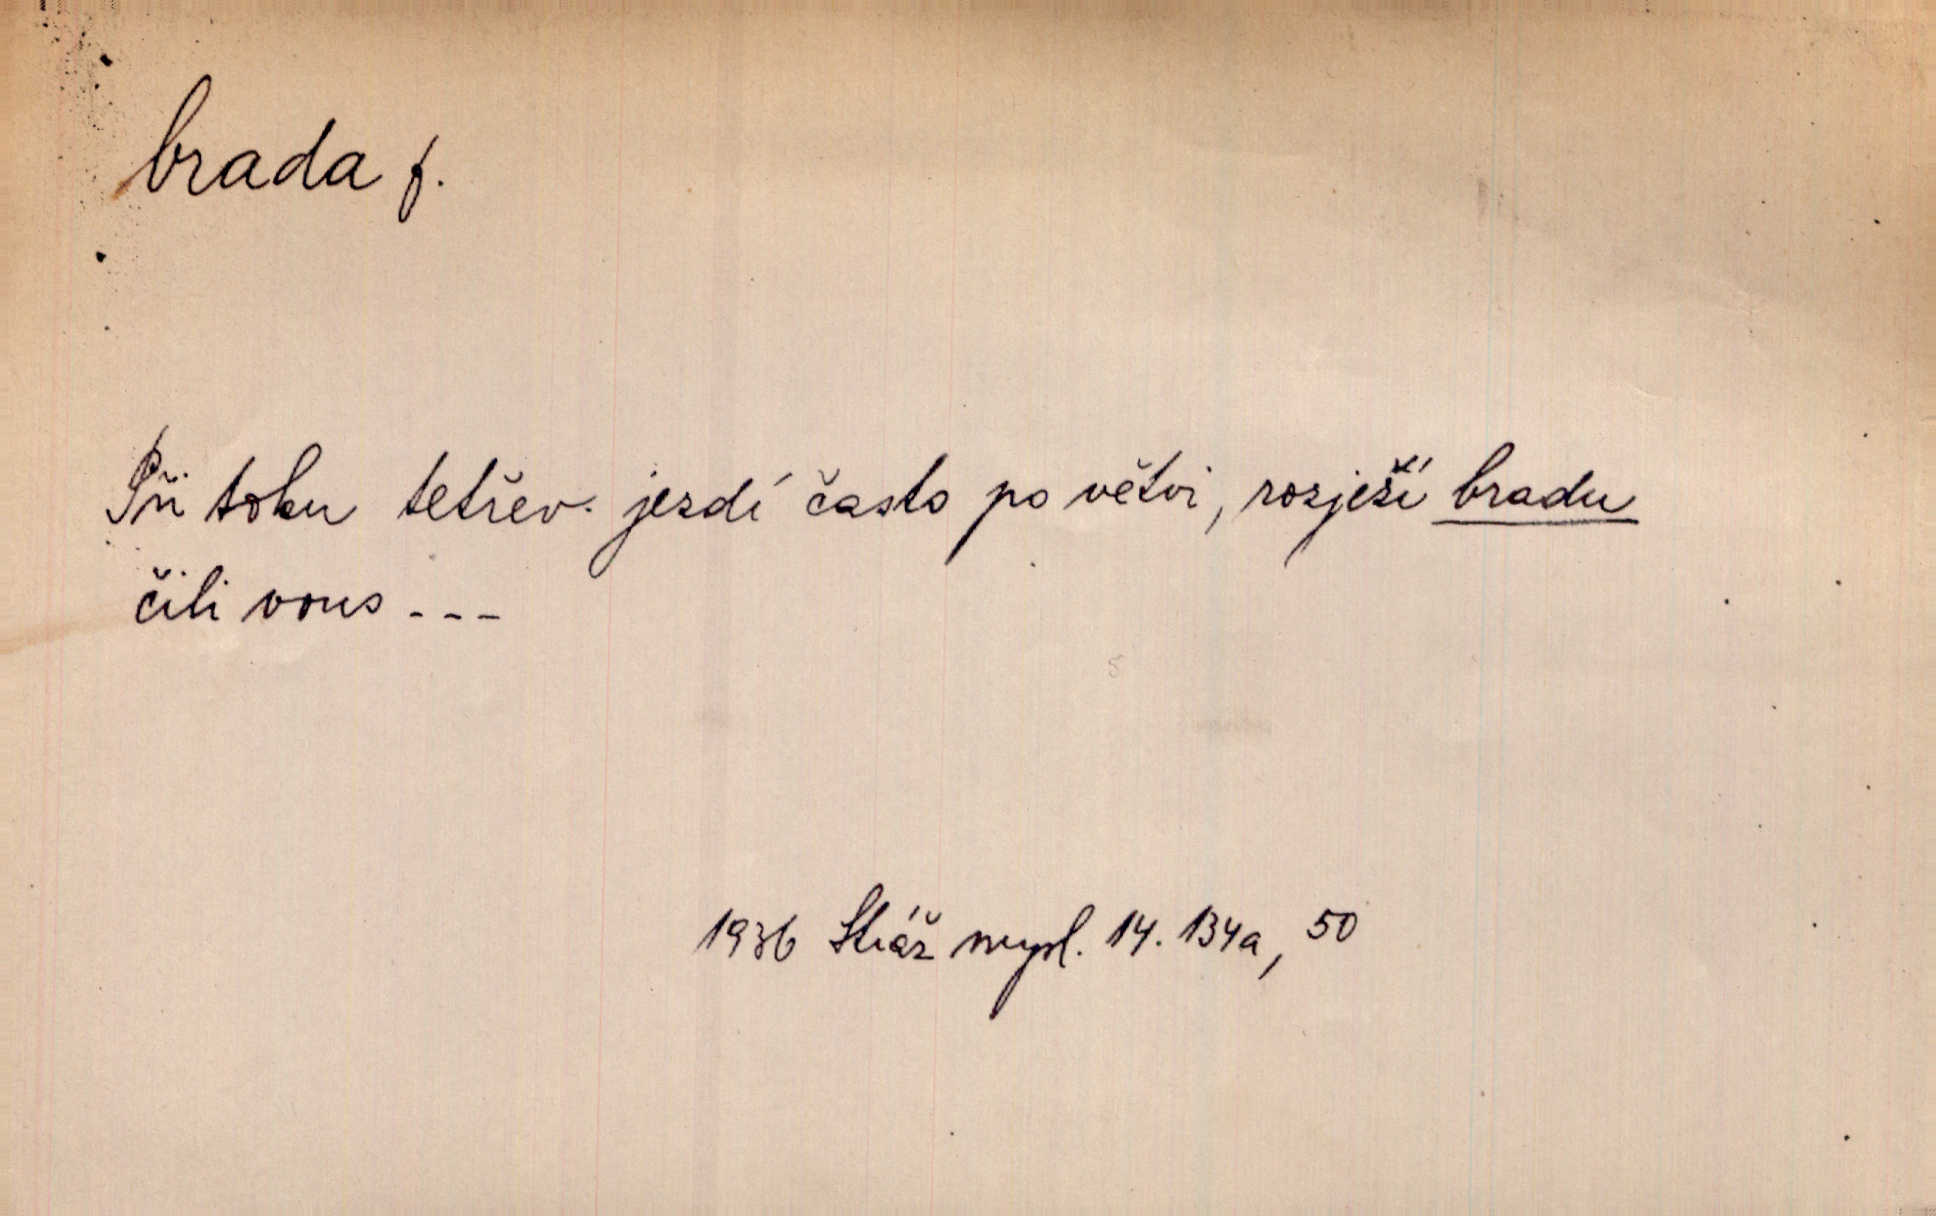 brada f.
Při toku tetřev jezdí často po větvi, rozježí bradu
čili vous ---
1936 Stráž mysl. 14. 134a, 50